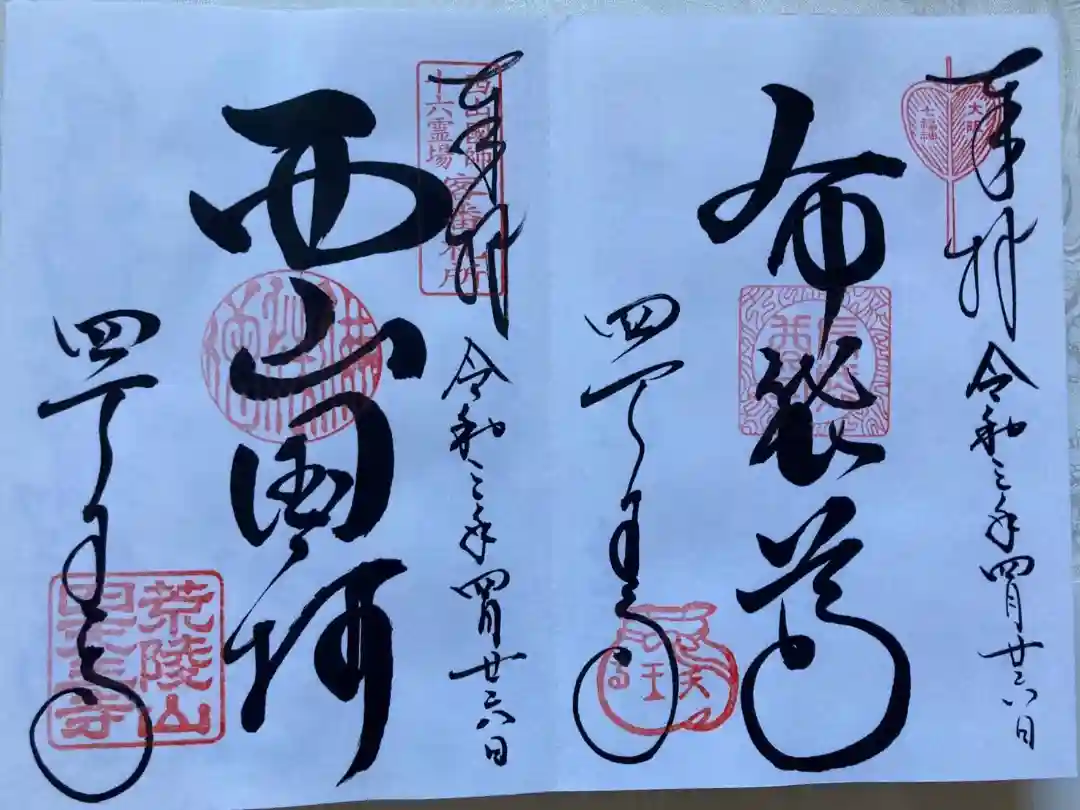 奉拝
大阪
七福神
令和三年四月廿六日
布袋尊
四天王寺
奉拝
西山國師
十六霊場
客番札所
令和三年四月廿六日
西山國師
四天王寺
荒陵山
四天王寺